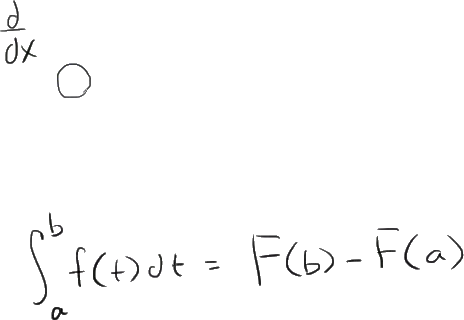 d/dx ○
∫_a^b f(t)dt = F(b) - F(a)